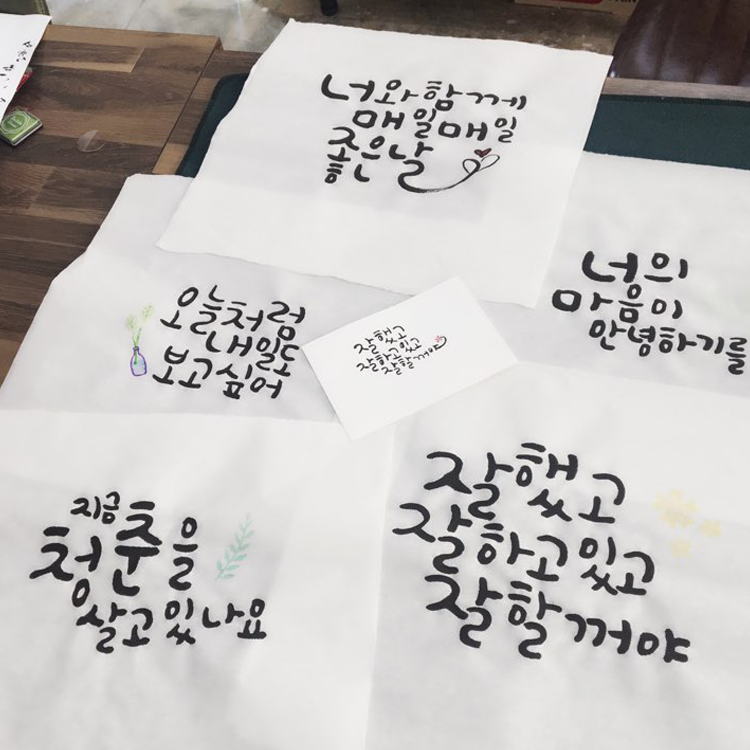 너와함께
매일매일
좋은날
너의
마음이
안녕하기를
오늘처럼
내일도
보고싶어
잘했고
잘하고있고
잘할꺼야
지금
청춘을
살고있나요
잘했고
잘하고있고
잘할꺼야